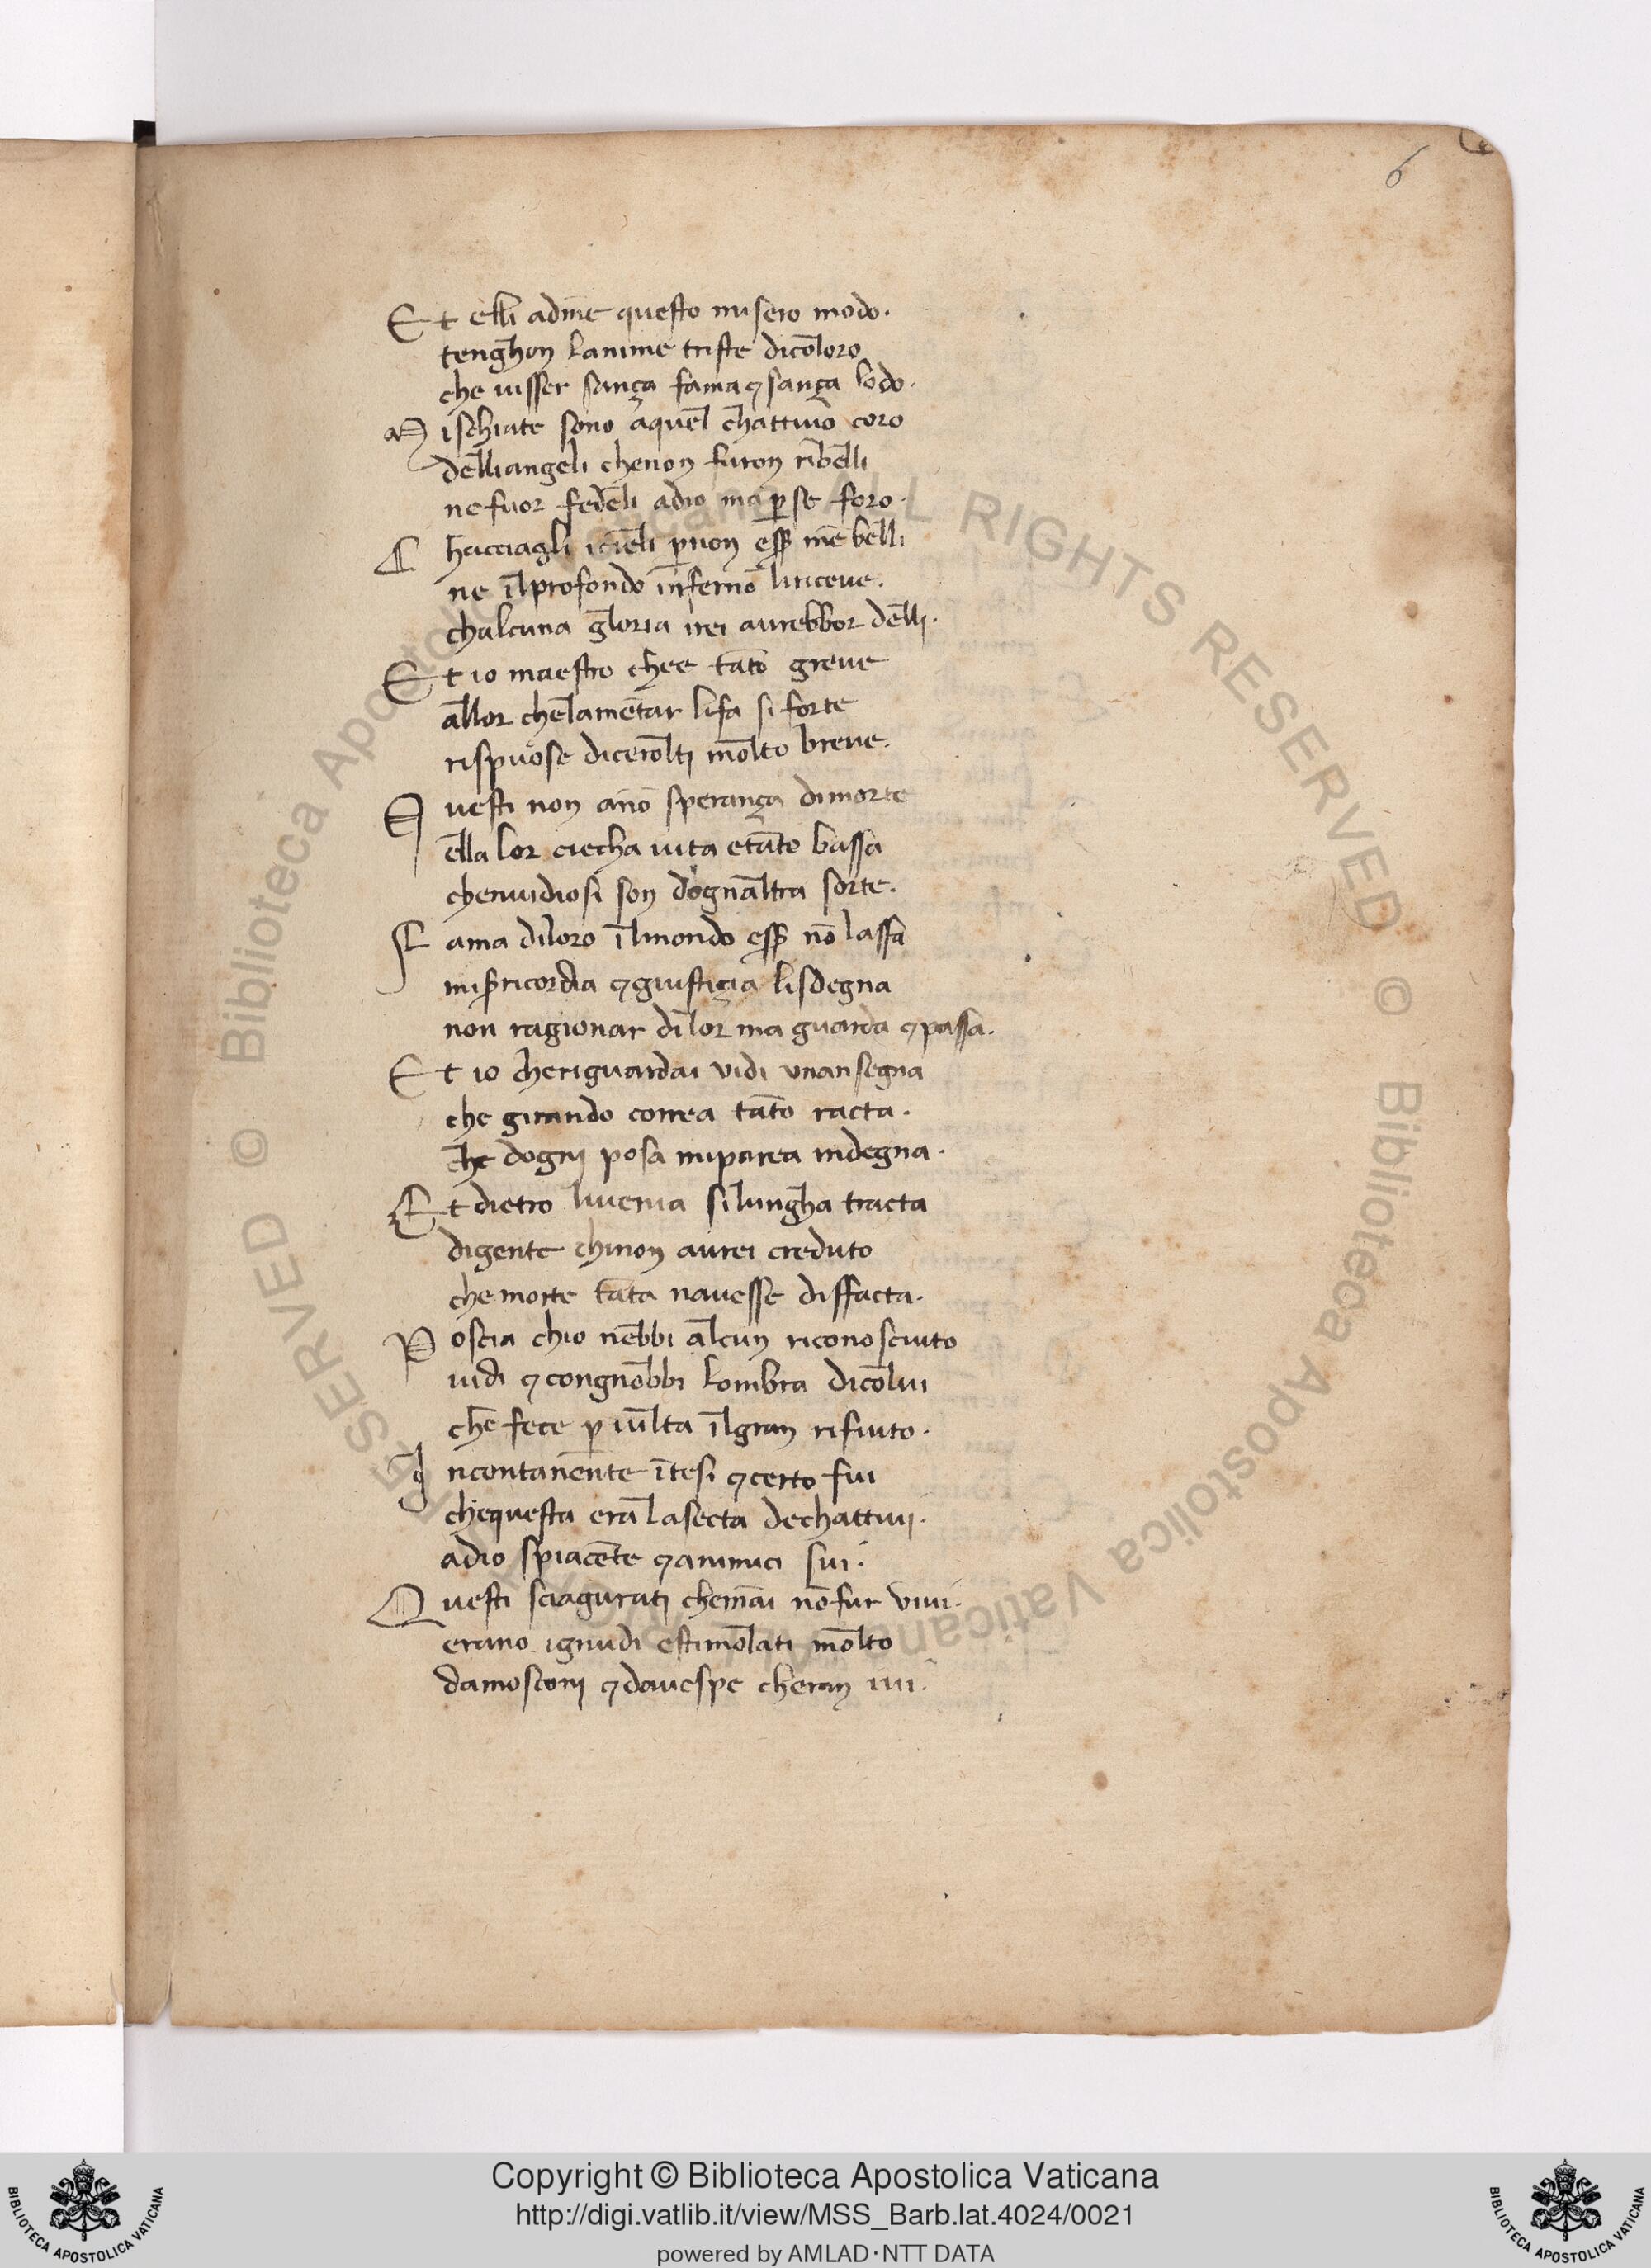 6
Et elli adme questo misero modo.
tenghon lanime triste dicoloro
che uisser sança fama ⁊ sança lodo.
Mischiate sono aquel chattiuo coro
delliangeli chenon furon ribelli
ne fuor fedeli adio ma ꝑse foro.
Chacciagli icieli ꝑnon eſſꝑ mē belli
ne īlprofondo inferno liriceue.
chalcuna gloria irei aurebbor delli.
Et io maestro chee tāto greue
allor chelamētar lifa si forte
rispuose dicerolti molto breue.
Questi non ano sperança dimorte
ella lor ciecha uita etāto bassa
chenuidiosi son dognaltra sorte.
Fama diloro īlmondo eſſꝑ nō lassa
misericordia ⁊ giustiçia lisdegna
non ragionar dilor ma guarda ⁊ passa.
Et io cheriguardai vidi vnansegna
che girando correa tāto racta.
che dogni posa miparea indegna.
Et dietro liuenia silungha tracta
digente chinon aurei creduto
che morte tāta nauesse diffacta.
Poscia chio nebbi alcun riconosciuto
uidi ⁊ congnobbi lombra dicolui
che fece ꝑ iulta īlgran rifiuto.
Incontanente ītesi ⁊ certo fui
chequesta era lasecta dechattiui.
adio spiacēte ⁊ animici sui.
Questi sciagurati chemai nōfur viui.
erano ignudi estimolati molto
damosconi ⁊ dauespe cheran iui.
© Biblioteca Apostolica Vaticana ALL RIGHTS RESERVED © Biblioteca Apostolica Vaticana ALL RIGHTS RESERVED
Copyright © Biblioteca Apostolica Vaticana
http://digi.vatlib.it/view/MSS_Barb.lat.4024/0021
powered by AMLAD·NTT DATA
BIBLIOTECA APOSTOLICA VATICANA
BIBLIOTECA APOSTOLICA VATICANA